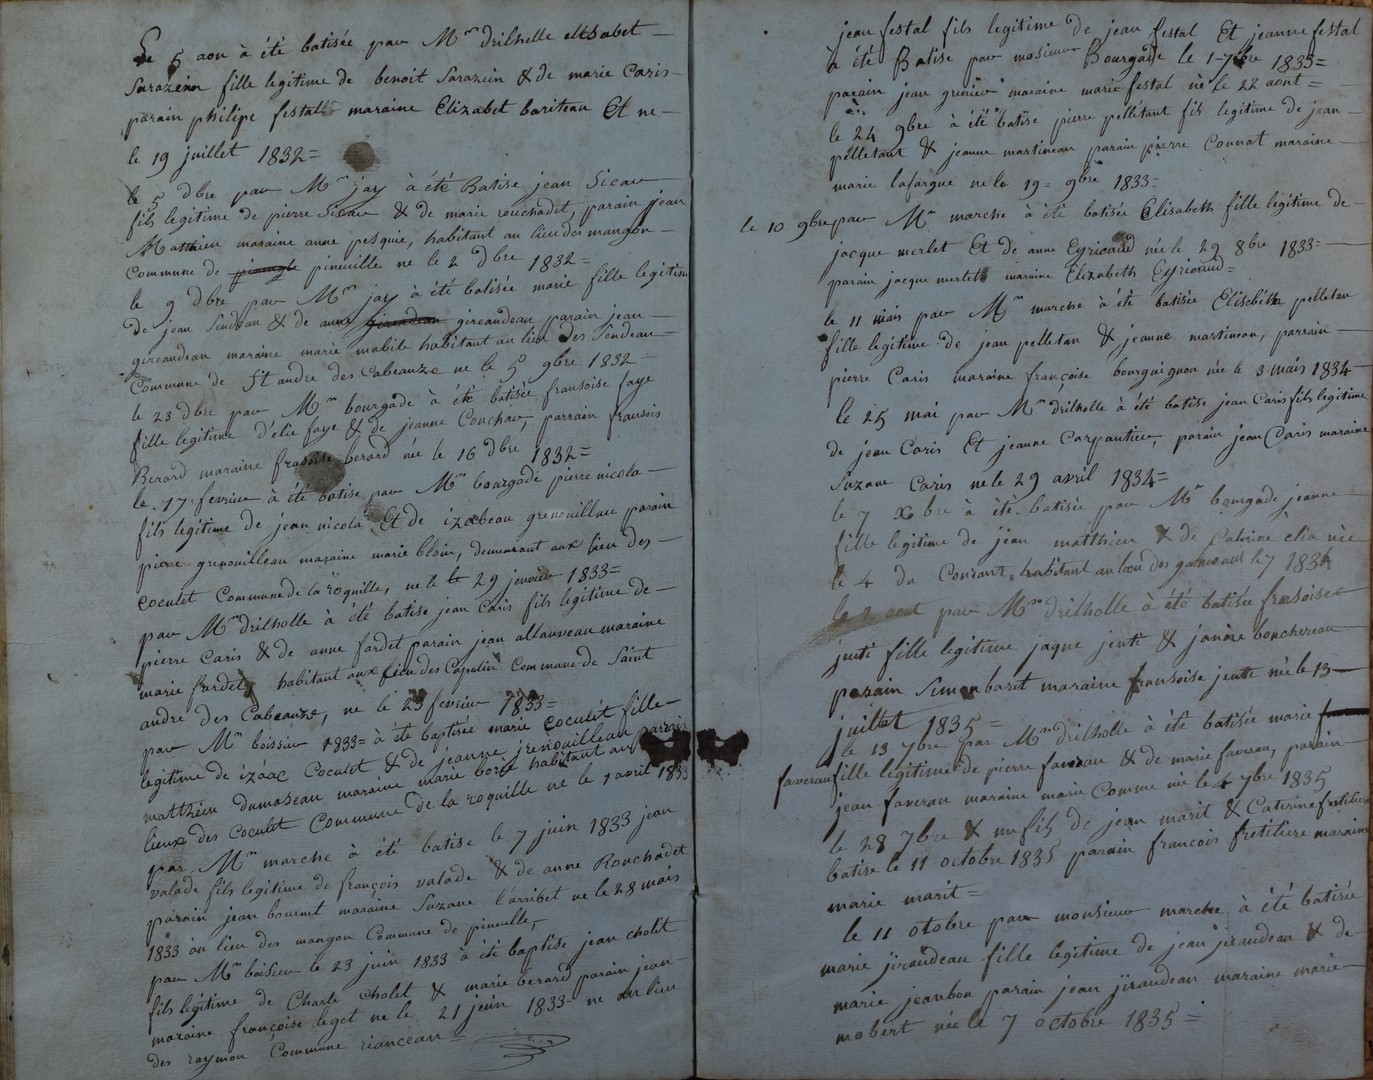 Le 5 aou à été batisée par Mr drilholle elisabet
Sarazin fille legitime de benoit Sarazin & de marie Caris
parain philipe festall maraine Elizabet bariteau Et ne
le 19 juillet 1832=
le 5 dbre par Mr jay à été Batise jean Sicau
fils legitime de pierre Sicau & de marie rouchadet, parain jean
Matthieu maraine anne pesquie, habitant au lieu des mangon
Commune de pineuille ne le 2 dbre 1832=
le 9 dbre par Mr jay à été batisée marie fille legitime
de jean & de anne gireaudeau parain jean
gireaudeau maraine marie mabile habitant au lieu des
Commune de St andre des Cabeauze ne le 5 9bre 1832
le 23 dbre par Mr bourgade à été batisée fransoise faye
fille legitime d'elie faye & de jeanne Conchau, parrain fransois
Berard maraine frasoise berard née le 16 dbre 1832=
le 17 fevrier à été batise par Mr bourgade pierre nicola
fils legitime de jean nicola Et de izabeau grenouillau parain
pierre grenouilleau maraine marie bloin, demeurant aux lieu des
Coculet Commune de la roquille, ne le 29 jenvier 1833=
par Mr drilholle à été batise jean Caris fils legitime de
pierre Caris & de anne fardet parain jean allauveau maraine
marie fardet, habitant aux lieu des Capulin Commune de Saint
andre des Cabeauze, ne le 23 fevrier 1833=
par Mr boissier 1833= à été baptisée marie Coculet fille
legitime de izáac Coculet & de jeanne jrenouilleau parain
matthieu dumaseau maraine marie borie habitant au
lieux des Coculet Commune de la roquille ne le 1 avril 1833
par Mr marche à été batise le 7 juin 1833 jean
valade fils legitime de françois valade & de anne Rouchadet
parain jean bournet maraine Suzane l'arribet ne le 28 mais
1833 au lieu des mangon Commune de pineuille,
par Mr boisier le 23 juin 1833 à été baptise jean cholit
fils legitime de Charle Cholet & marie berard parain jean
maraine françoise leget ne le 21 juin 1833= ne au lieu
des raymon Commune rianceau=
jean festal fils legitime de jean festal Et jeanne festal
à été Batise par mosieur Bourgade le 1-7bre 1833=
parain jean grenier maraine marie festal né le 22 aout=
le 24 9bre à été batise pierre pelletant fils legitime de jean
pelletant & jeanne martineau parain pierre Connat maraine
marie lafargue ne le 19= 9bre 1833=
le 10 9bre par Mr marche à été batisée Elisabeth fille legitime de
jacque merlet Et de anne Eyricaud née le 29 8bre 1833=
parain jacque merlet maraine Elizabeth Eyricaud=
le 11 mais par Mr marche à été batisée Elisebéth pelletan
fille legitime de jean pelletan & jeanne martineau, parrain
pierre Caris maraine françoise bourguignon née le 3 mais 1834
le 25 mai par Mr drilholle à été batise jean Caris fils legitime
de jean Caris Et jeanne Carpantier, parain jean Caris maraine
Suzane Caris ne le 29 avril 1834=
le 7 xbre à été batisée par Mr bourgade jeanne
fille legitime de jean matthieu & de Caterine elia née
le 4 du Courant, habitant au lieu des le 7 1834
le 2 aout par Mr drilholle à été batisée frasoise
jenti fille legitime jaque jenti & janne bouchereau
parain Simon baret maraine fransoise jente née le 13
juillet 1835=
le 13 7bre par Mr drilholle à été batisée marie
faverau fille legitime de pierre faverau & de marie faverau, parain
jean faverau maraine marie Comme née le 4 7bre 1835
le 28 7bre & un fils de jean marit & Caterine fretiliere
batise le 11 octobre 1835 parain francois fretiliere maraine
marie marit=
le 11 otobre par monsieur marche à été batisée
marie jiraudeau fille legitime de jean jiraudeau & de
marie jeanbon parain jean jiraudeau maraine marie
mobert née le 7 octobre 1835=